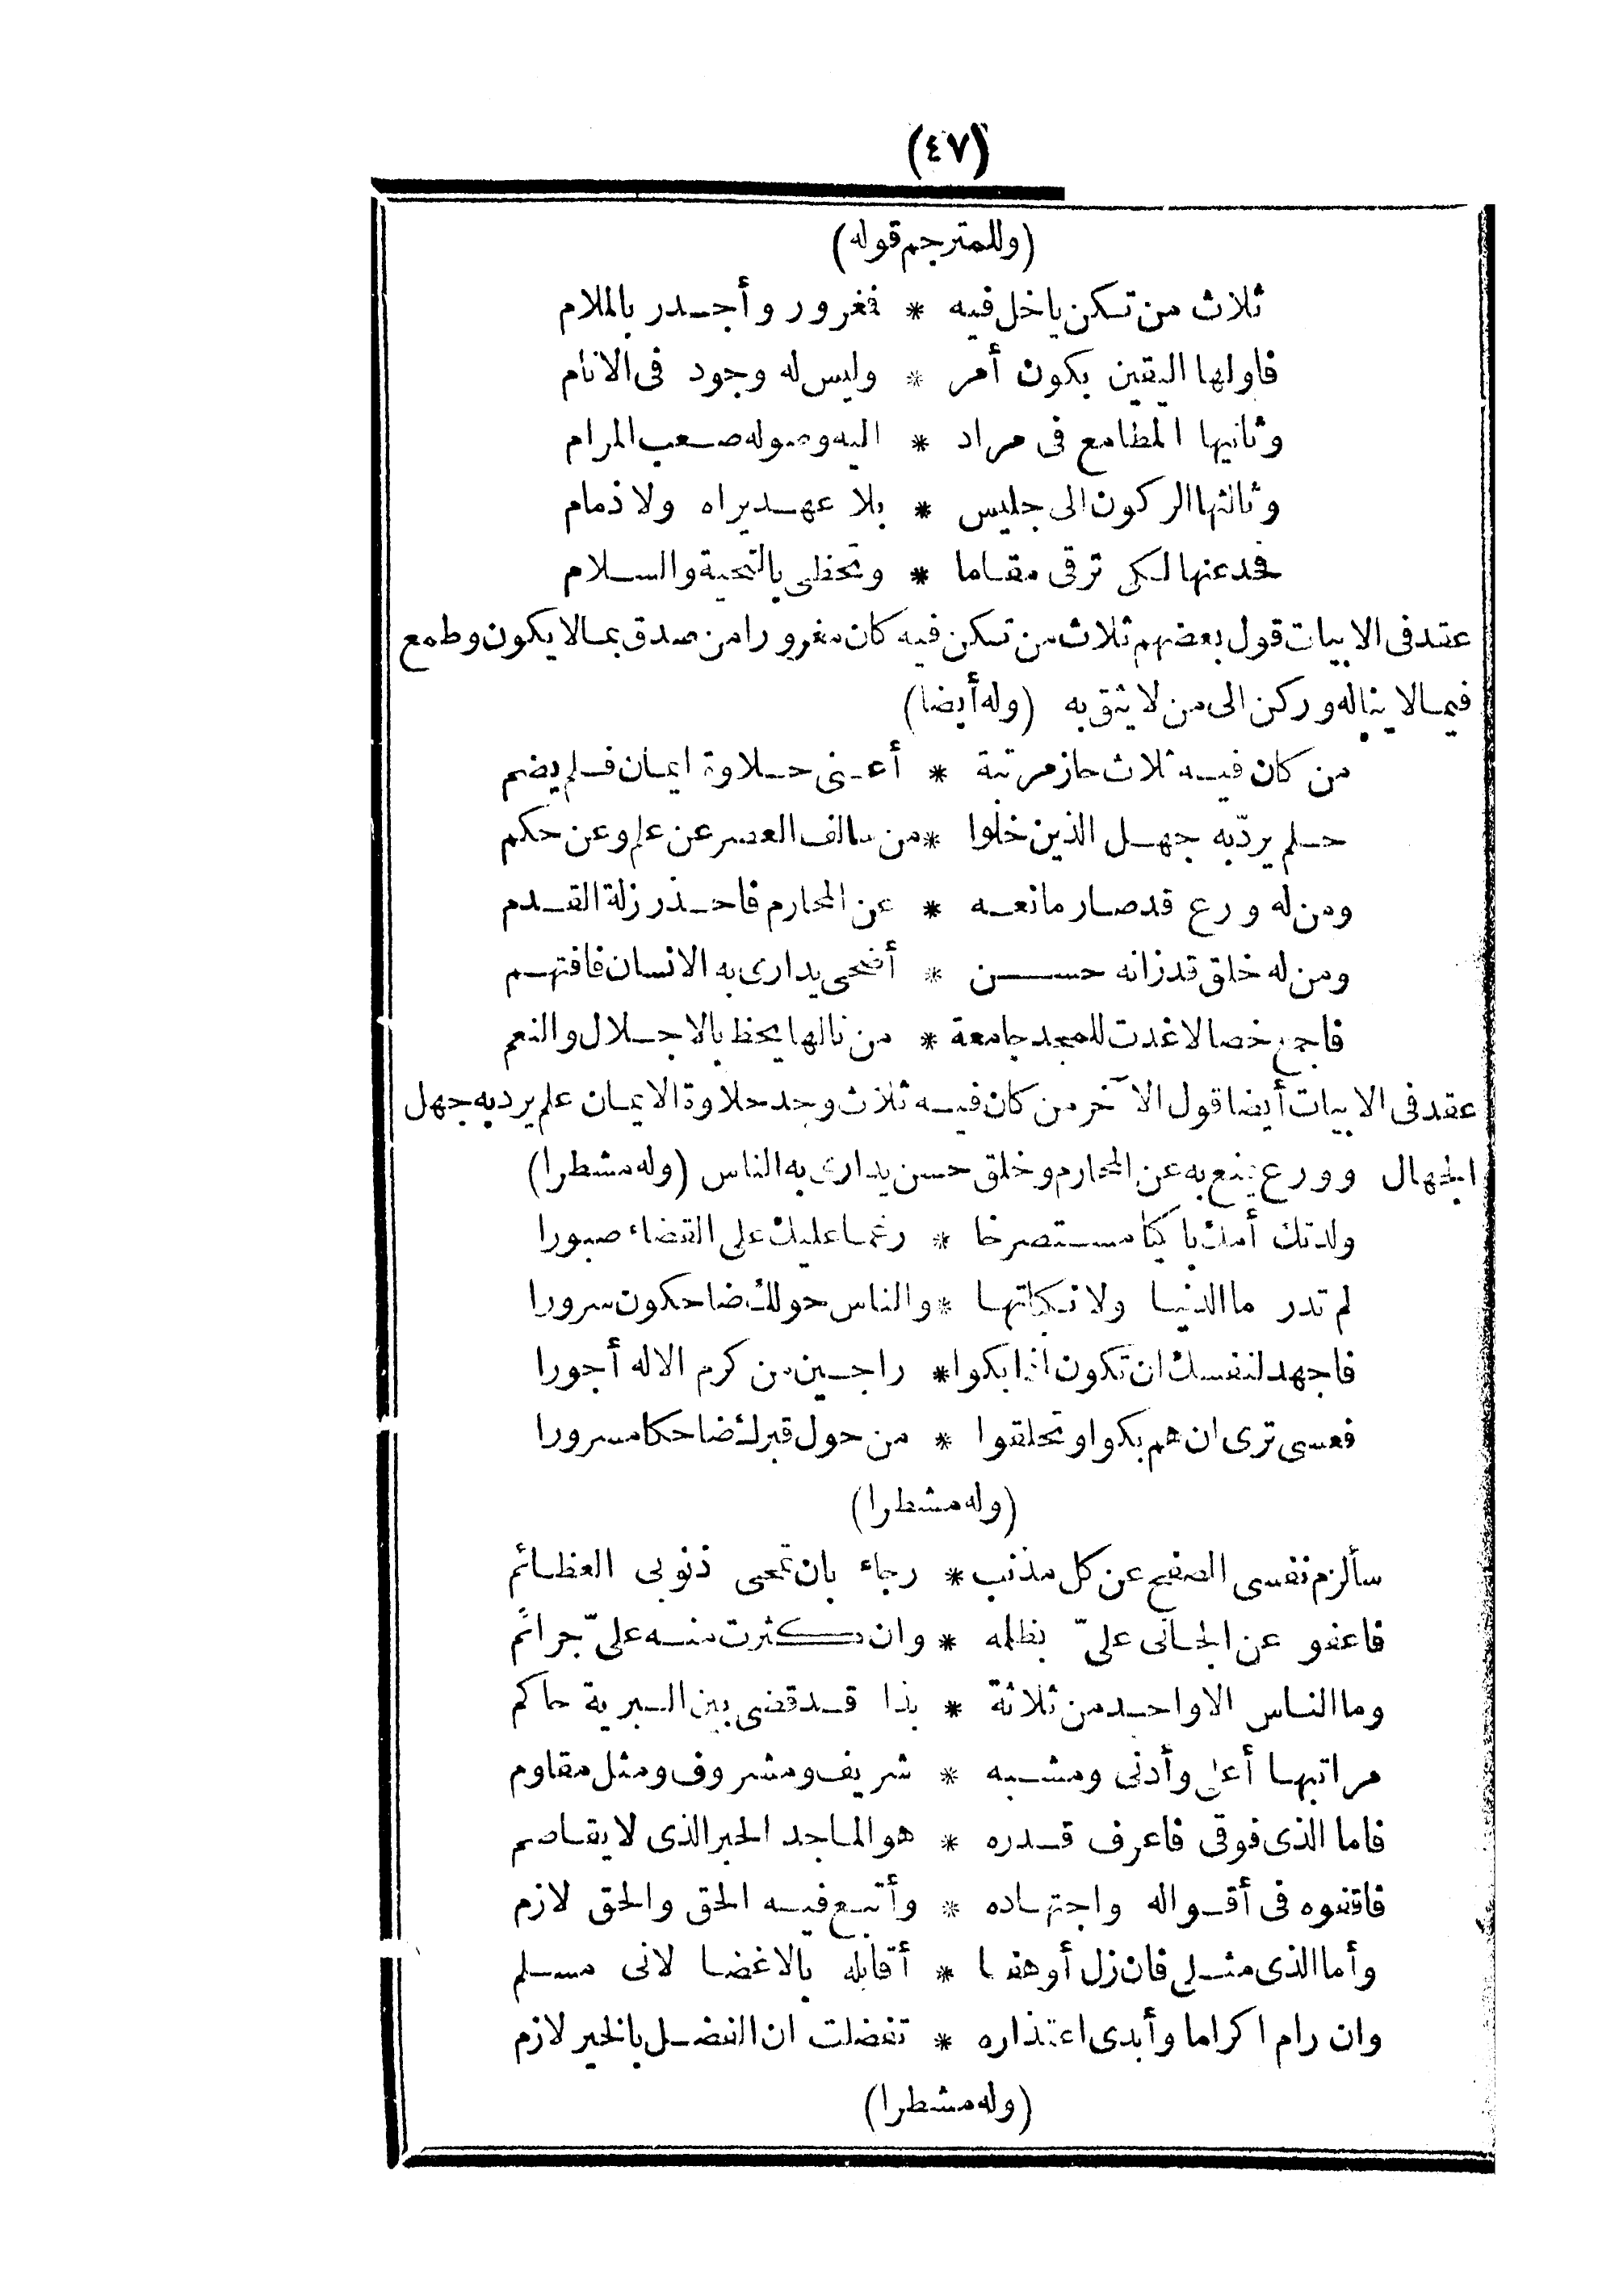 (٤٧)
(وللمترجم قوله)
ثلاث من تكن ياخل فيه * فغرور وأجدر بالملام
فاولها اليقين بكون أمر * وليس له وجود فى الانام
وثانيها المطامع فى مراد * اليه وصوله صعب المرام
وثالثها الركون الى جليس * بلا عهد يراه ولا ذمام
فحد عنها لكى ترقى مقاما * وتحظى بالتحية والسلام
عقد فى الابيات قول بعضهم ثلاث من تكن فيه كان مغرورا من صدق بما لا يكون وطمع
فيما لا يناله وركن الى من لا يثق به (وله أيضا)
من كان فيه ثلاث حاز مرتبة * أعنى حلاوة ايمان فلم يضم
حلم يردّ به جهل الذين خلوا * من سالف العصر عن علم وعن حكم
ومن له ورع قد صار مانعه * عن المحارم فاحذر زلة القدم
ومن له خلق قد زانه حسن * أضحى يدارى به الانسان فافتهم
فاجمع خصالا غدت للمجد جامعة * من نالها يحظ بالاجلال والنعم
عقد فى الابيات أيضا قول الآخر من كان فيه ثلاث وجد حلاوة الايمان علم يرد به جهل
الجهال وورع يمنع به عن المحارم وخلق حسن يدارى به الناس (وله مشطرا)
ولدتك أمك باكيا مستصرخا * رغما عليك على القضاء صبورا
لم تدر ما الدنيا ولا نكاتها * والناس حولك ضاحكون سرورا
فاجهد لنفسك ان تكون اذا بكوا * راجين من كرم الاله أجورا
فعسى ترى ان هم بكوا وتحلقوا * من حول قبرك ضاحكا مسرورا
(وله مشطرا)
سألزم نفسى الصفح عن كل مذنب * رجاء بان تمحى ذنوبى العظائم
فاعفو عن الجانى علىّ بظلمه * وان كثرت منه علىّ جرائم
وما الناس الا واحد من ثلاثة * بذا قد قضى بين البرية حاكم
مراتبها أعلى وأدنى ومشبه * شريف ومشروف ومثل مقاوم
فاما الذى فوقى فاعرف قدره * هو الماجد الحبر الذى لا يقاصم
فاقفوه فى أقواله واجتهاده * وأتبع فيه الحق والحق لازم
وأما الذى مثلى فان زل أو هفا * أقابله بالاغضا لانى مسلم
وان رام اكراما وأبدى اعتذاره * تفضلت ان الفضل بالخير لازم
(وله مشطرا)